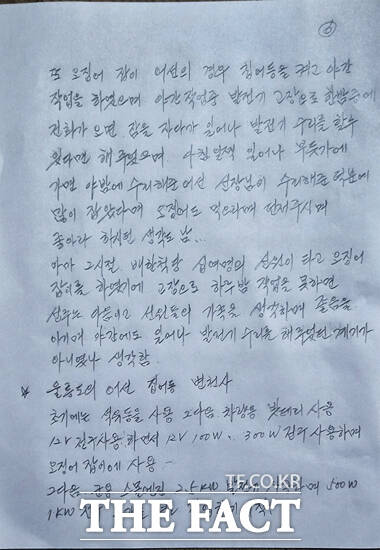 ⑥
또 오징어 잡이 어선의 경우 집어등을 켜고 야간
작업을 하였으며 야간작업중 발전기 고장으로 한밤중에
전화가 오면 잠을 자다가 일어나 발전기 수리를 할수
있다면 해주었으며 아침 일찍 일어나 부둣가에
가면 야밤에 수리해준 어선 선장님이 수리해준 덕분에
많이 잡았다며 오징어도 먹으라며 던져주시며
좋아라 하시던 생각도 남...
아마 그시절 배한척당 십여명의 선원이 타고 오징어
잡이를 하였기에 고장으로 하루밤 작업을 못하면
선주는 다음이고 선원들의 가족을 생각하며 졸음을
이기며 야간에도 일어나 발전기 수리를 해주었던 계기가
아니였나 생각함.
* 울릉도의 어선 집어등 변천사
초기에는 석유등을 사용 그다음 차량용 밧데리 사용
12V 전구사용하면서 12V 100W, 300W 전구 사용하며
오징어 잡이에 사용
그다음 2.5KW 500W
1KW
TF.CO.KR
THE FACT